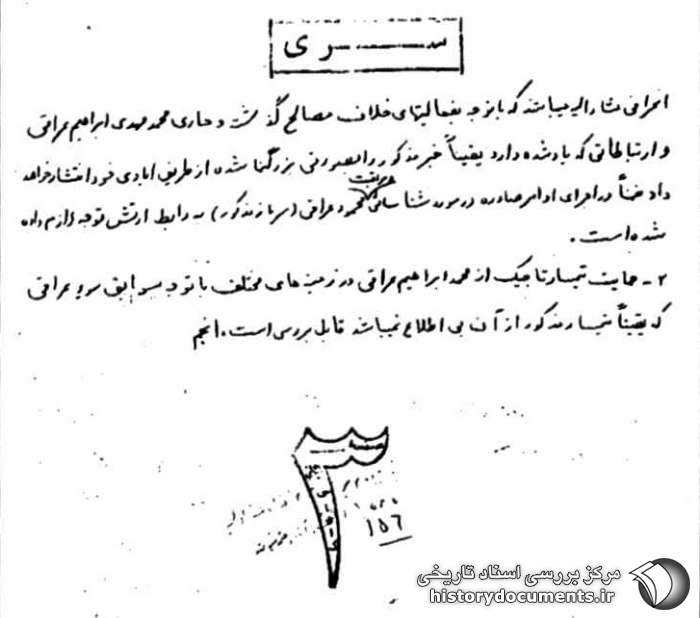 سری
انحرافی مشارالیه میباشد که با توجه بفعالیتهای خلاف مصالح گذشته و جاری محمد مهدی ابراهیم عراقی
و ارتباطاتی که یاد شده دارد یقیناً خبر مذکور را بصورتی بزرگتر شده از طریق ایادی خود انتشار خواهد
داد ضمناً در اجرای اوامر صادره در مورد شناسائی هویت محمود عراقی (سرباز مذکور) به رابط ارتش توجه لازم داده
شده است.
۲ـ حمایت تیمسار تاجیک از محمد ابراهیم عراقی در زمینه های مختلف با توجه بسوابق سوء عراقی
که یقیناً تیمسار مذکور از آن بی اطلاع نمیباشد قابل بررسی است. انجم
۳
۱۵۶
مرکز بررسی اسناد تاریخی
historydocuments.ir